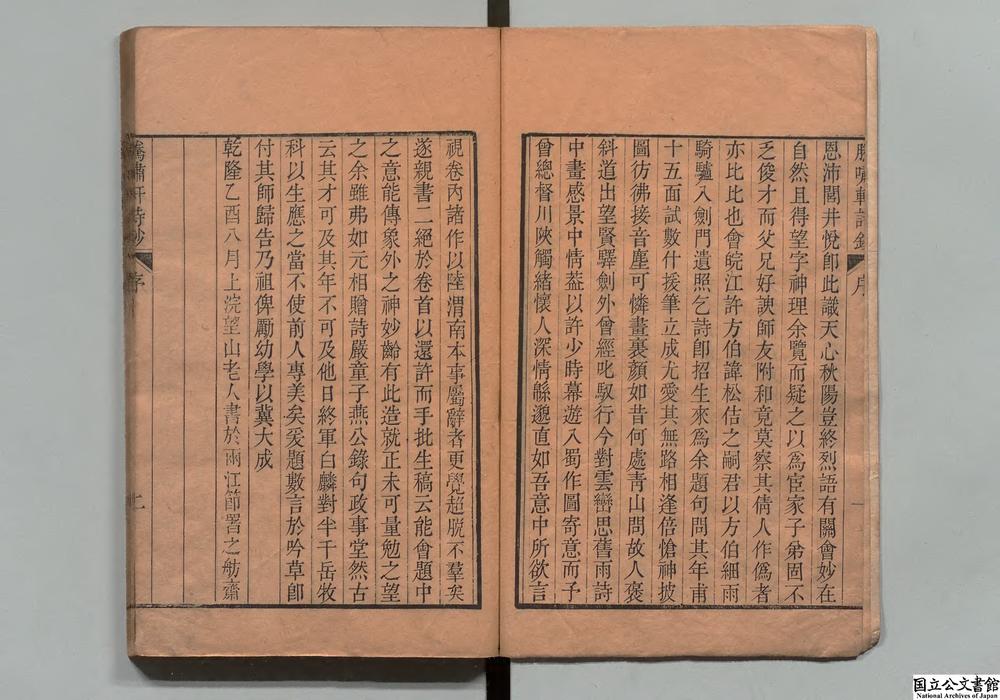 恩沛閭井悅卽此識天心秋陽豈終烈語有關會妙在
自然且得望字神理余覽而疑之以爲宦家子弟固不
乏俊才而父兄好諛師友附和竟莫察其倩人作僞者
亦比比也會皖江許方伯諱松佶之嗣君以方伯細雨
騎驢入劍門遺照乞詩卽招生來爲余題句問其年甫
十五面試數什援筆立成尤愛其無路相逢倍愴神披
圖彷彿接音塵可憐畫裏顏如昔何處靑山問故人褒
斜道出望賢驛劍外曾經叱馭行今對雲巒思舊雨詩
中畫感景中情葢以許少時幕遊入蜀作圖寄意而予
曾總督川陝觸緖懷人深情緜邈直如吾意中所欲言
序
一
視卷內諸作以陸渭南本事屬辭者更覺超脱不羣矣
遂親書二絕於卷首以還許而手批生稿云能會題中
之意能傳象外之神妙齡有此造就正未可量勉之望
之余雖弗如元相贈詩嚴童子燕公錄句政事堂然古
云其才可及其年不可及他日終軍白麟對半千岳牧
科以生應之當不使前人專美矣爰題數言於吟草卽
付其師歸告乃祖俾勵幼學以冀大成
乾隆乙酉八月上浣望山老人書於兩江節署之舫齋
嘯軒詩鈔
序
国立公文書館
National Archives of Japan